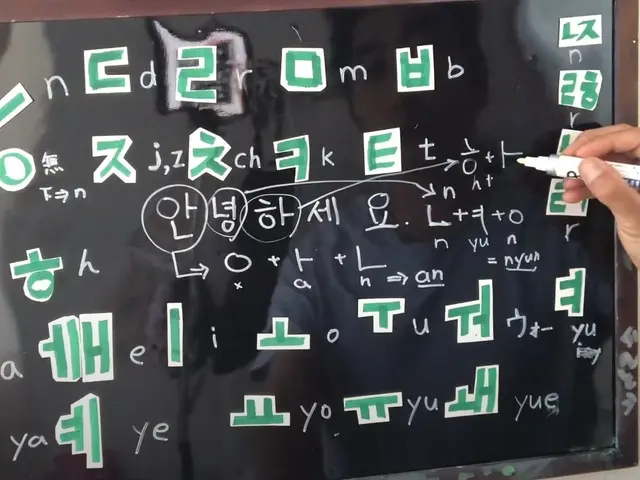 ㄷ n ㄷ d ㄹ r ㅁ m ㅂ b
n
r
ㅇ 無 ㅈ j,z ㅊ ch ㅋ k ㅌ t ㅎ + ㅏ
下⇒n
안 녕 하 세 요.
n h +
ㄴ + ㅕ + ㅇ
n yu n
= nyun
r
ㅎ h
→ ㅇ + ㅏ + ㄴ ⇒ an
x a n
a ㅐ e ㅣ i ㅗ o ㅜ u ㅝ ウォー ㅕ yu
ya ㅖ ye ㅛ yo ㅠ yu ㅙ yue